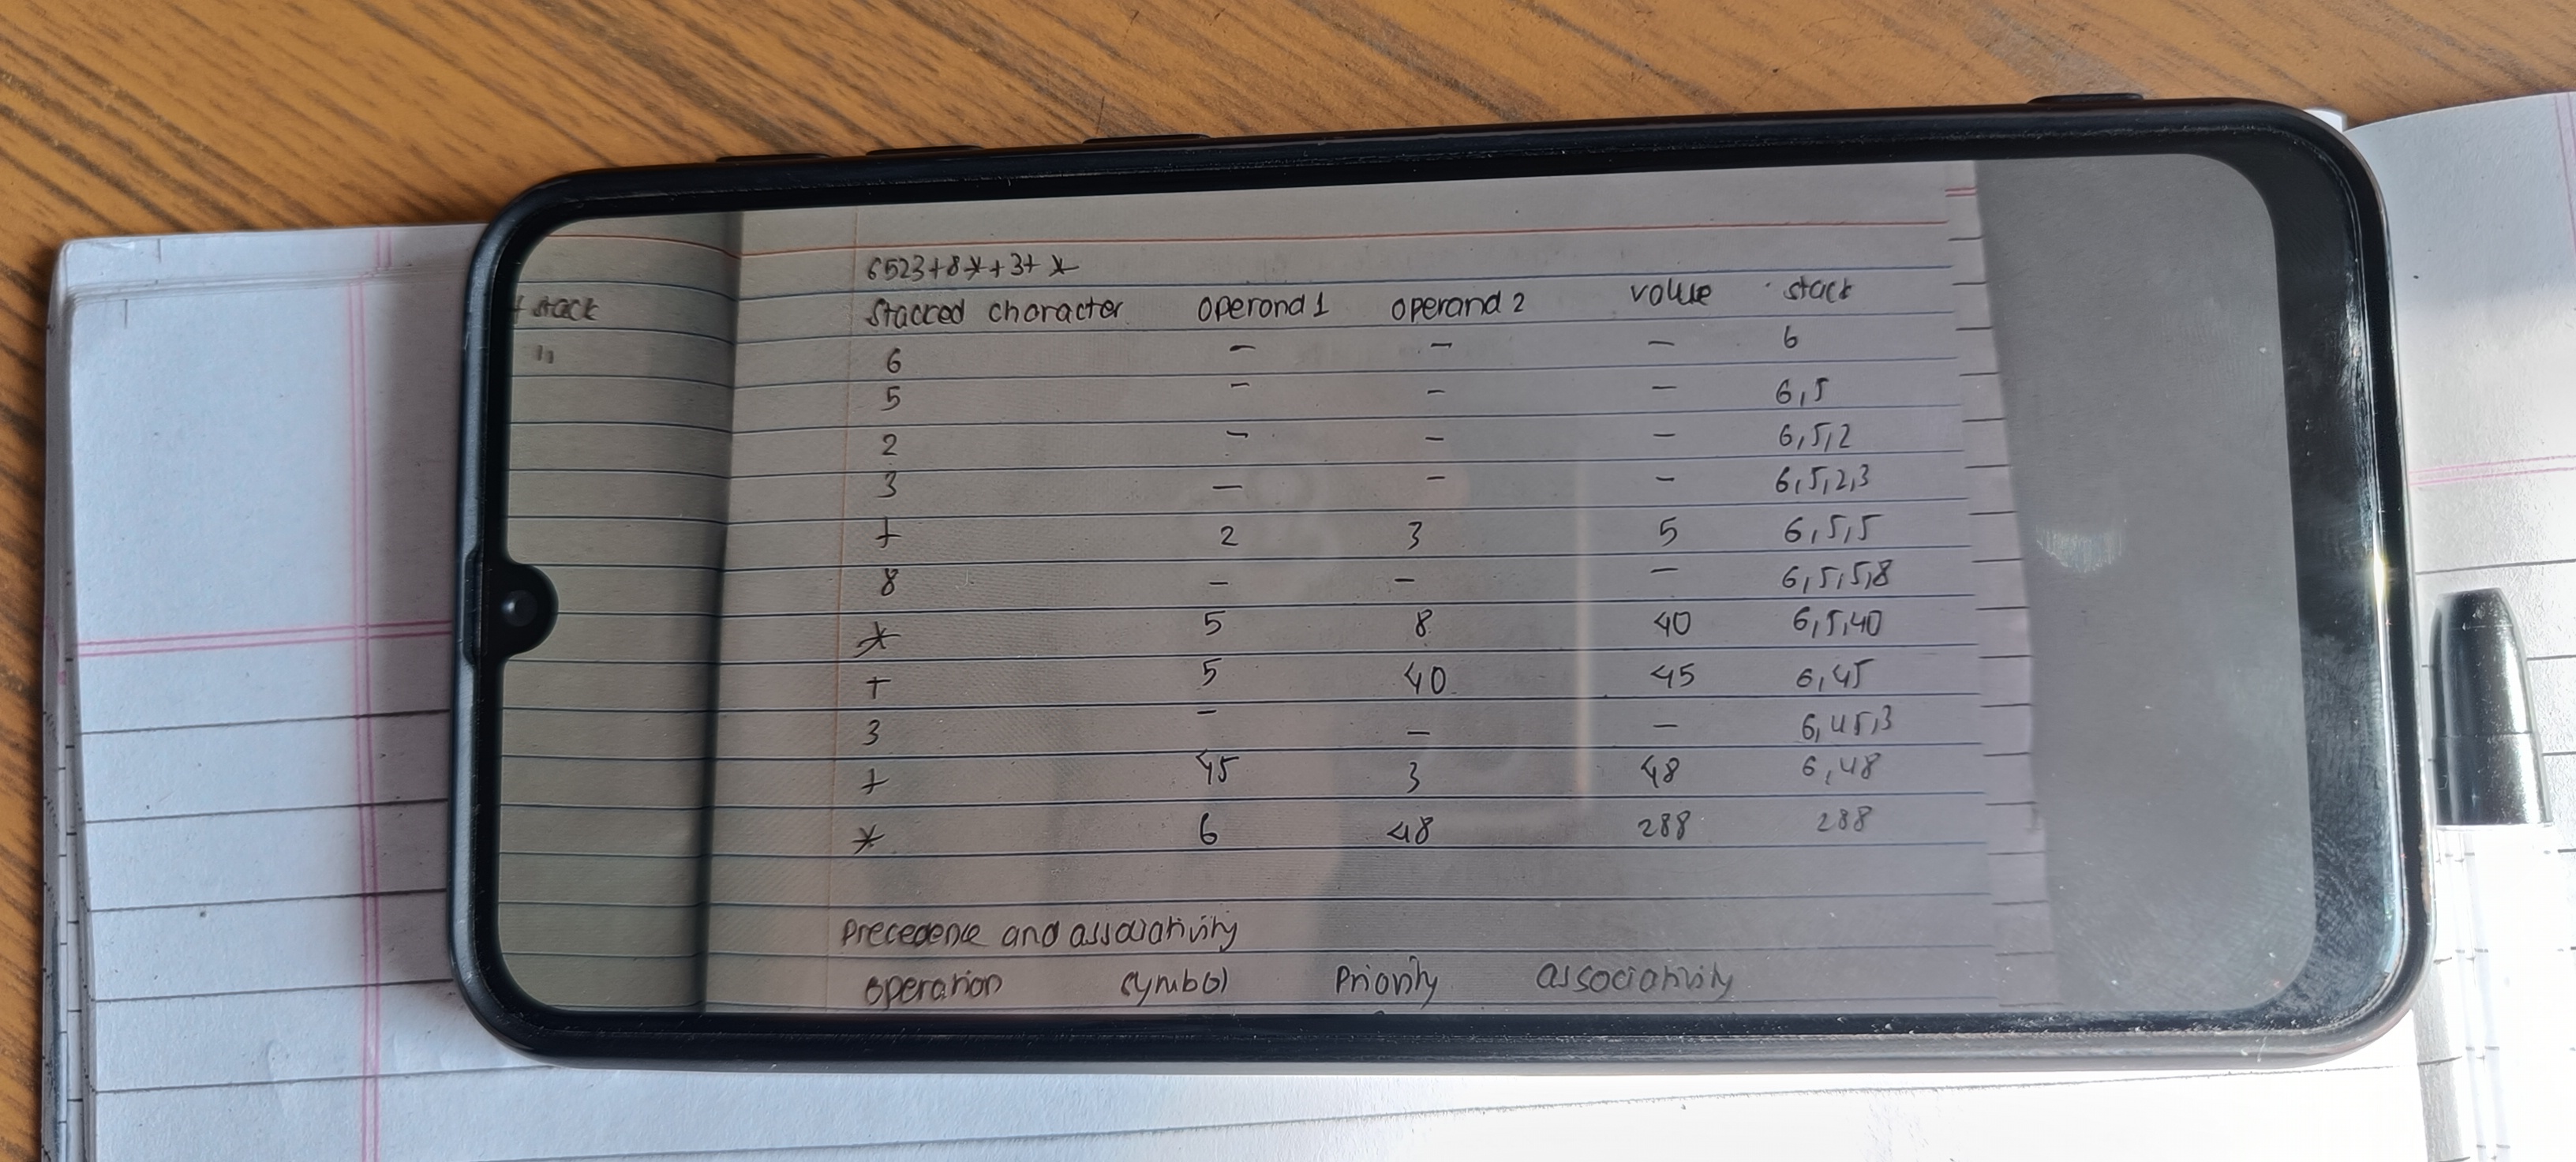 6523+8*+3+*
stack
Stacced character operond 1 operand 2 value stack
"
6 - - - 6
5 - - - 6,5
2 - - - 6,5,2
3 - - - 6,5,2,3
+ 2 3 5 6,5,5
8 - - - 6,5,5,8
* 5 8 40 6,5,40
+ 5 40 45 6,45
3 - - - 6,45,3
+ 45 3 48 6,48
* 6 48 288 288
precedence and associativity
operation symbol Priority associativity